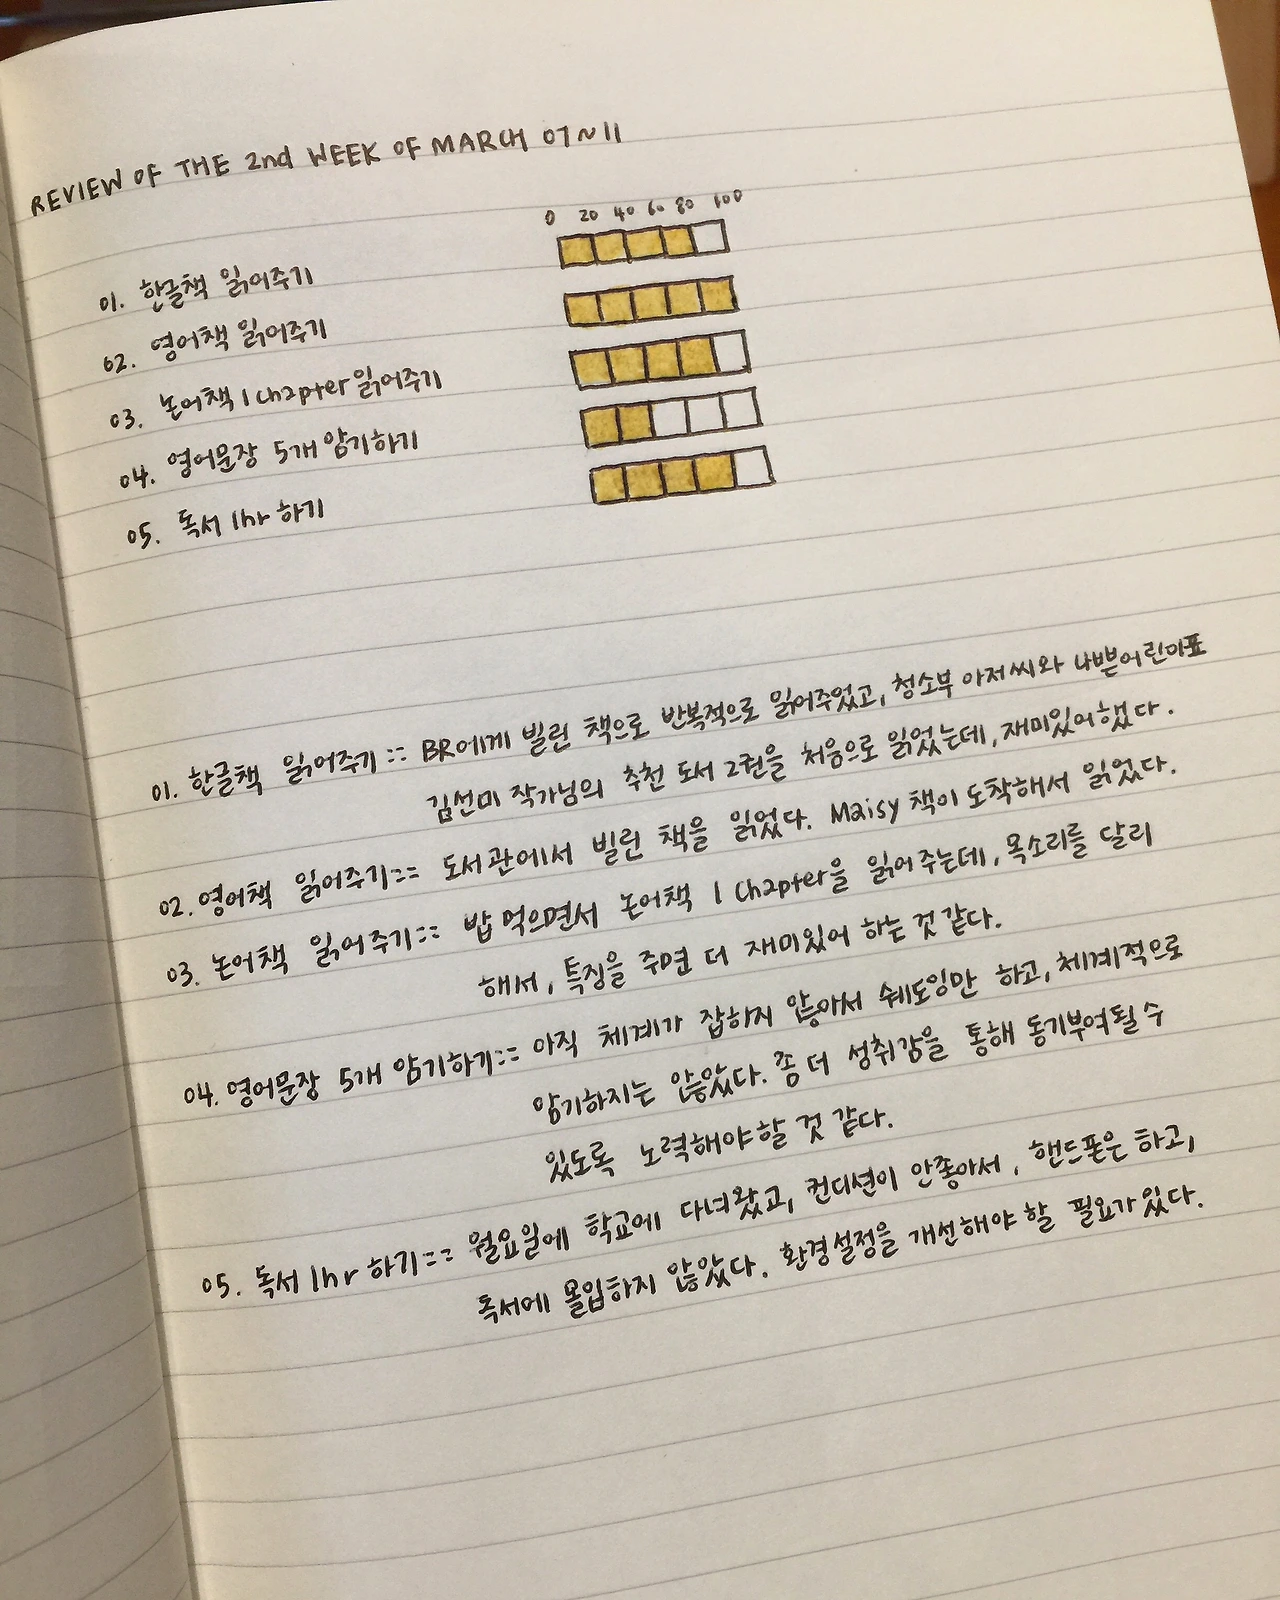 REVIEW OF THE 2nd WEEK OF MARCH 07~11
0 20 40 60 80 100
01. 한글책 읽어주기
02. 영어책 읽어주기
03. 논어책 1 chapter 읽어주기
04. 영어문장 5개 암기하기
05. 독서 1hr 하기
01. 한글책 읽어주기 :: BR에게 빌린 책으로 반복적으로 읽어주었고, 청소부 아저씨와 나쁜어린이표
김선미 작가님의 추천 도서 2권을 처음으로 읽었는데, 재미있어했다.
02. 영어책 읽어주기 :: 도서관에서 빌린 책을 읽었다. Maisy 책이 도착해서 읽었다.
03. 논어책 읽어주기 :: 밥 먹으면서 논어책 1 chapter을 읽어주는데, 목소리를 달리
해서, 특징을 주면 더 재미있어 하는 것 같다.
04. 영어문장 5개 암기하기 :: 아직 체계가 잡하지 않아서 쉐도잉만 하고, 체계적으로
암기하지는 않았다. 좀 더 성취감을 통해 동기부여될 수
있도록 노력해야할 것 같다.
05. 독서 1hr 하기 :: 월요일에 학교에 다녀왔고, 컨디션이 안좋아서, 핸드폰은 하고,
독서에 몰입하지 않았다. 환경설정을 개선해야 할 필요가 있다.